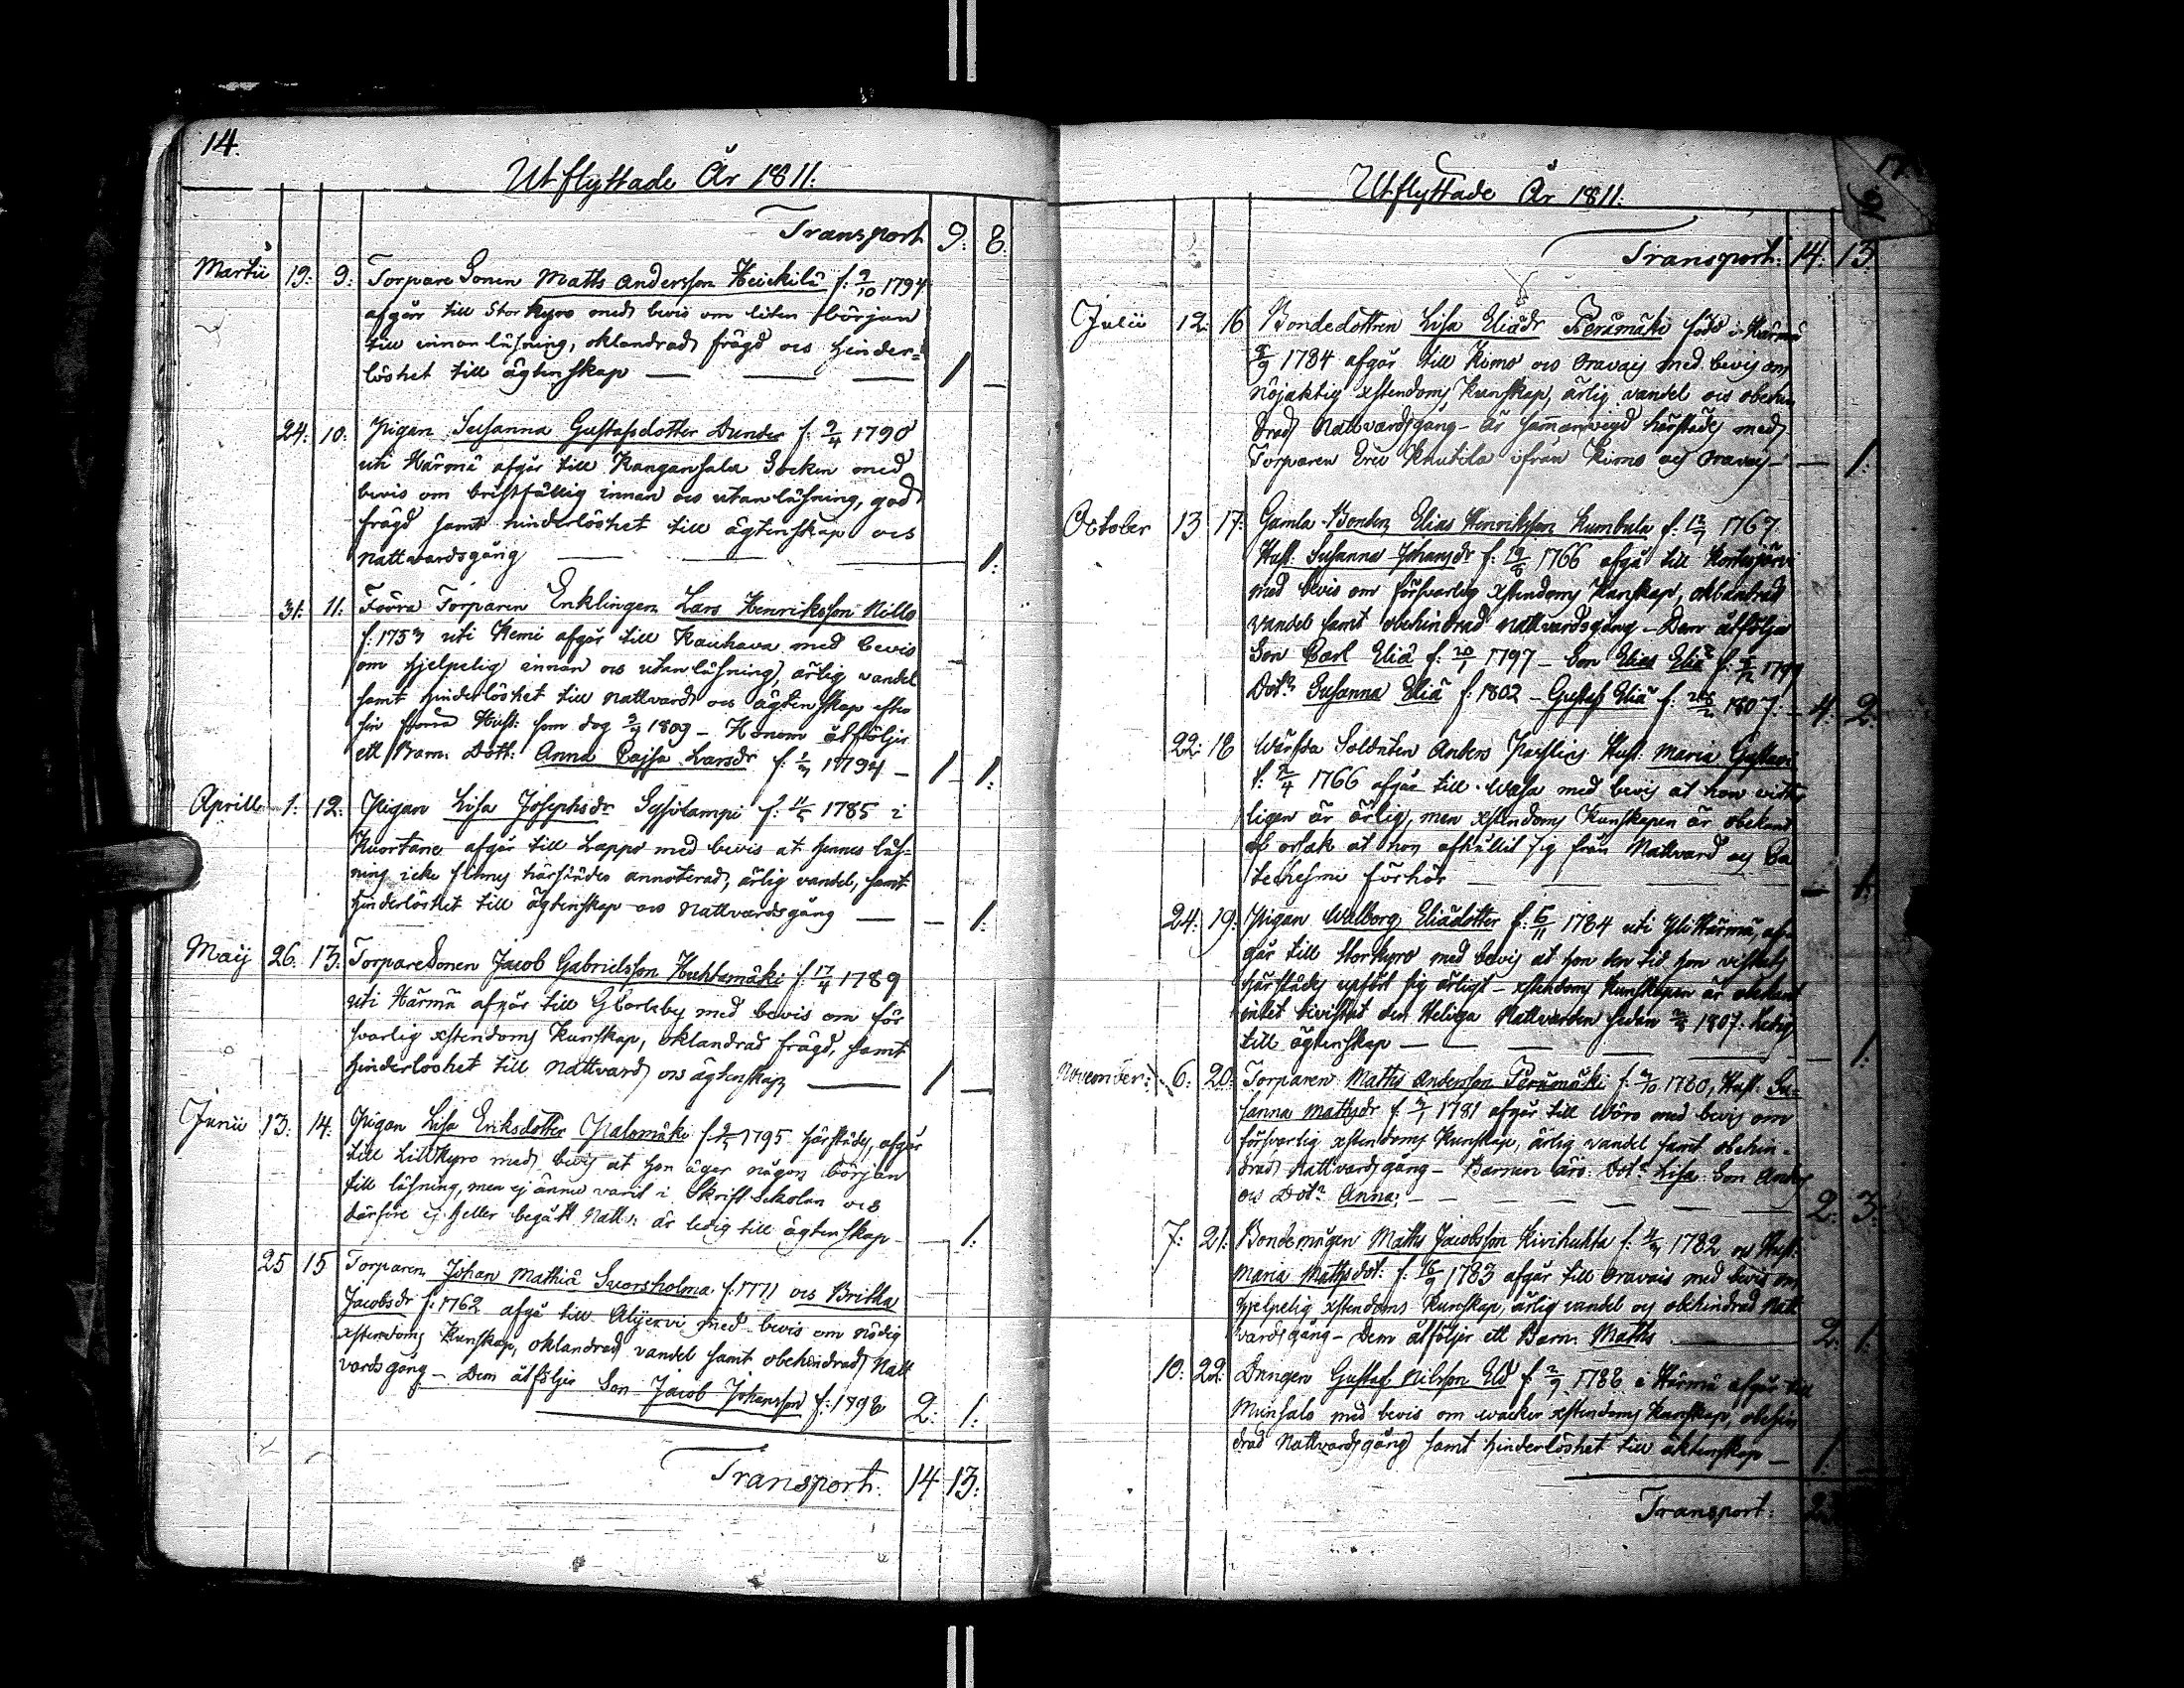 14.
Utflyttade År 1811:
Transport 9: 8:
Martii 19: 9: Torpare Sonen Matts Andersson Heickilä f: 9/10 1794
afgår till Storkyro med bevis om liten början
till innanläsning, oklandrad frägd ock hinder=
löshet till ägtenskap — — — 1 —
24: 10: Pigan Susanna Gustafsdotter Dunder f: 9/4 1790
uti Härmä afgår till Kangansala Socken med
bevis om bristfällig innan ock utanläsning, god
frägd samt hinderlöshet till ägtenskap ock
nattvardsgång — — — 1:
31: 11: Torparen Enklingen Lars Henriksson Nills
f: 1753 uti Kemi afgår till Kauhava med bevis
om hjelpelig innan ock utanläsning, ärlig vandel
samt hinderlöshet till nattvard ock ägtenskap efter
sin förra Hust: som dog 1809 – Honom åtföljer
ett Barn. Dott: Anna Cajsa Larsdr f: 1794 – 1 – 1:
Aprill 1: 12: Pigan Lisa Josephsdr Sysilampi f: 11/5 1785 i
Kuortane afgår till Lappo med bevis at hennes läs=
ning icke finnes härstädes annoterad, ärlig vandel, samt
hinderlöshet till ägtenskap ock Nattvardsgång — — 1:
Maij 26: 13: Torpare Sonen Jacob Gabrielsson Huhtamäki f: 17/4 1789
uti Härmä afgår till GCarleby med bevis om för
svarlig xstendoms Kunskap, oklandrad frägd, samt
hinderlöshet till Nattvard ock ägtenskap — 1 —
Junii 13: 14: Pigan Lisa Eriksdotter Palomäki f: 1795 härstädes, afgår
till Lillkyro med bevis at hon äger någon början
till läsning, men ej ännu varit i Skrift Scholan ock
därföre ej heller begått Nattv: är ledig till ägtenskap — 1:
25 15 Torparen Johan Mathiä Svorsholma f: 1771 ock Britha
Jacobsdr f: 1762 afgå till Alijervi med bevis om nödig
xstendoms Kunskap, oklandrad vandel samt obehindrad Natt
vardsgång – Dem åtföljer Son Jacob Johansson f: 1798 2: 1:
Transport: 14 13:
Utflyttade År 1811:
Transport: 14: 13:
Julii 12: 16 Bondedottren Lisa Eliädr Perämäki född i Härmä
8/9 1784 afgår till Kimo ock Oravais med bevis om
nöjaktig xstendoms Kunskap, ärlig vandel ock obehin
drad Nattvardsgång – är sammanvigd härstädes med
Torparen Eric Knutila ifrån Kimo och Oravais – — 1:
October 13 17: Gamla Bonden Elias Henriksson Kumbula f: 1767
Hust: Susanna Johansdr f: 19/8 1766 afgå till Kortesjärvi
med bevis om försvarlig xstendoms Kunskap, oklandrad
vandel samt obehindrad nattvardsgång – Dem åtfölja
Son Carl Eliä f: 20/1 1797 – Son Elias Eliä f: 1799
Dotr Susanna Eliä f: 1802 – Gustaf Eliä f: 1807: – 4: 2:
22: 18 Värfda Soldaten Anders Hust: Maria Gustavi
f: 2/4 1766 afgår till Wasa med bevis at hon vitter
ligen är ärlig, men xstendoms Kunskapen är obekant
af orsak at hon afhållit sig från Nattvard och Ca
techismi förhör — — — — 1:
24: 19: Pigan Walborg Eliädotter f: 6/11 1784 uti Ylihärmä, af=
går till Storkyro med bevis at hon den tid hon vistats
härstädes upfört sig ärligt – xstendoms Kunskapen är obekant
intet bevistat den Heliga Nattvarden sedan 1807: ledig
till ägtenskap — — — — — 1:
November: 6: 20: Torparen Matts Andersson Perämäki f: 1780, Hust: Su=
sanna Mattsdr f: 1781 afgår till Wörå med bevis om
försvarlig xstendoms Kunskap, ärlig vandel samt obehin=
drad Nattvardsgång – Barnen äro: Dotr Lisa Son Anders
ock Dotr Anna: — — — — 2: 3:
7: 21: Bondemågen Matts Jacobsson Kivihuhta f: 1782 ock Hust:
Maria Mattsdot: f: 18/9 1783 afgår till Oravais med bevis om
hjelpelig xstendoms Kunskap, ärlig vandel och obehindrad Natt
vardsgång – Dem åtföljer ett Barn: Matts — 2: 1:
10: 22: Drängen Gustaf Nilsson Eld f: 2/9 1788 i Härmä afgår till
Munsala med bevis om wacker xstendoms Kunskap, obehin
drad Nattvardsgång samt hinderlöshet till äktenskap — 1
Transport: